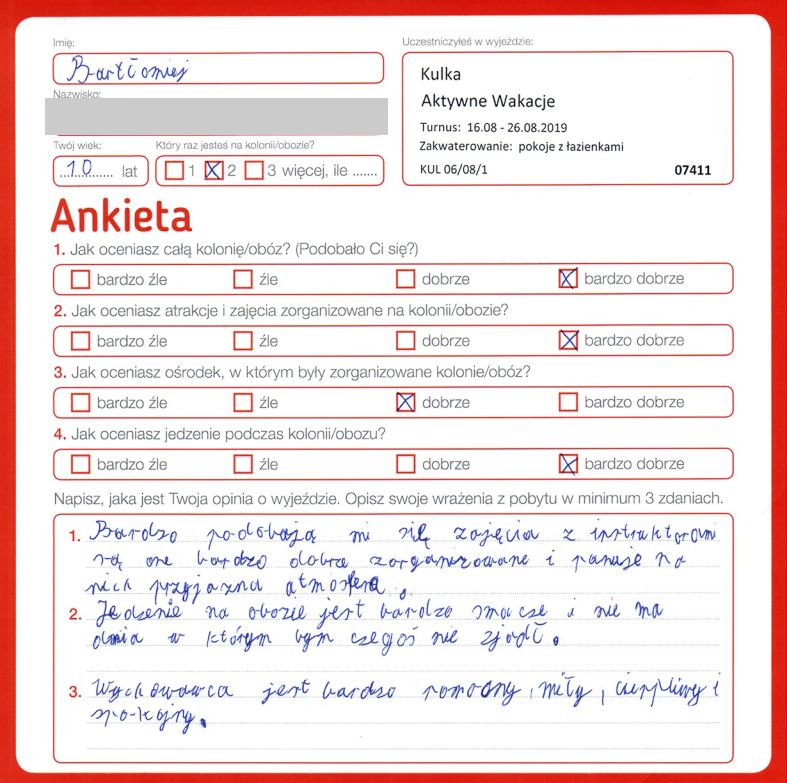 Imię:
Bartłomiej
Nazwisko:
Uczestniczyłeś w wyjeździe:
Kulka
Aktywne Wakacje
Turnus: 16.08 - 26.08.2019
Zakwaterowanie: pokoje z łazienkami
KUL 06/08/1 07411
Twój wiek: Który raz jesteś na kolonii/obozie?
10 lat 1 2 3 więcej, ile .......
Ankieta
1. Jak oceniasz całą kolonię/obóz? (Podobało Ci się?)
bardzo źle źle dobrze bardzo dobrze
2. Jak oceniasz atrakcje i zajęcia zorganizowane na kolonii/obozie?
bardzo źle źle dobrze bardzo dobrze
3. Jak oceniasz ośrodek, w którym były zorganizowane kolonie/obóz?
bardzo źle źle dobrze bardzo dobrze
4. Jak oceniasz jedzenie podczas kolonii/obozu?
bardzo źle źle dobrze bardzo dobrze
Napisz, jaka jest Twoja opinia o wyjeździe. Opisz swoje wrażenia z pobytu w minimum 3 zdaniach.
1. Bardzo podobają mi się zajęcia z instruktorami
są one bardzo dobrze zorganizowane i panuje na
nich przyjazna atmosfera.
2. Jedzenie na obozie jest bardzo smacze i nie ma
dnia w którym bym czegoś nie zjadł.
3. Wychowawca jest bardzo pomocny, miły, cierpliwy i
spokojny.